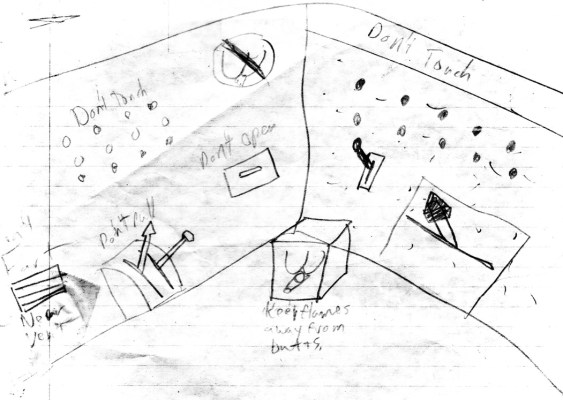 Don't Touch
Don't Touch
Don't Open
Don't Pull
Keep flames
away from
butts.
Never